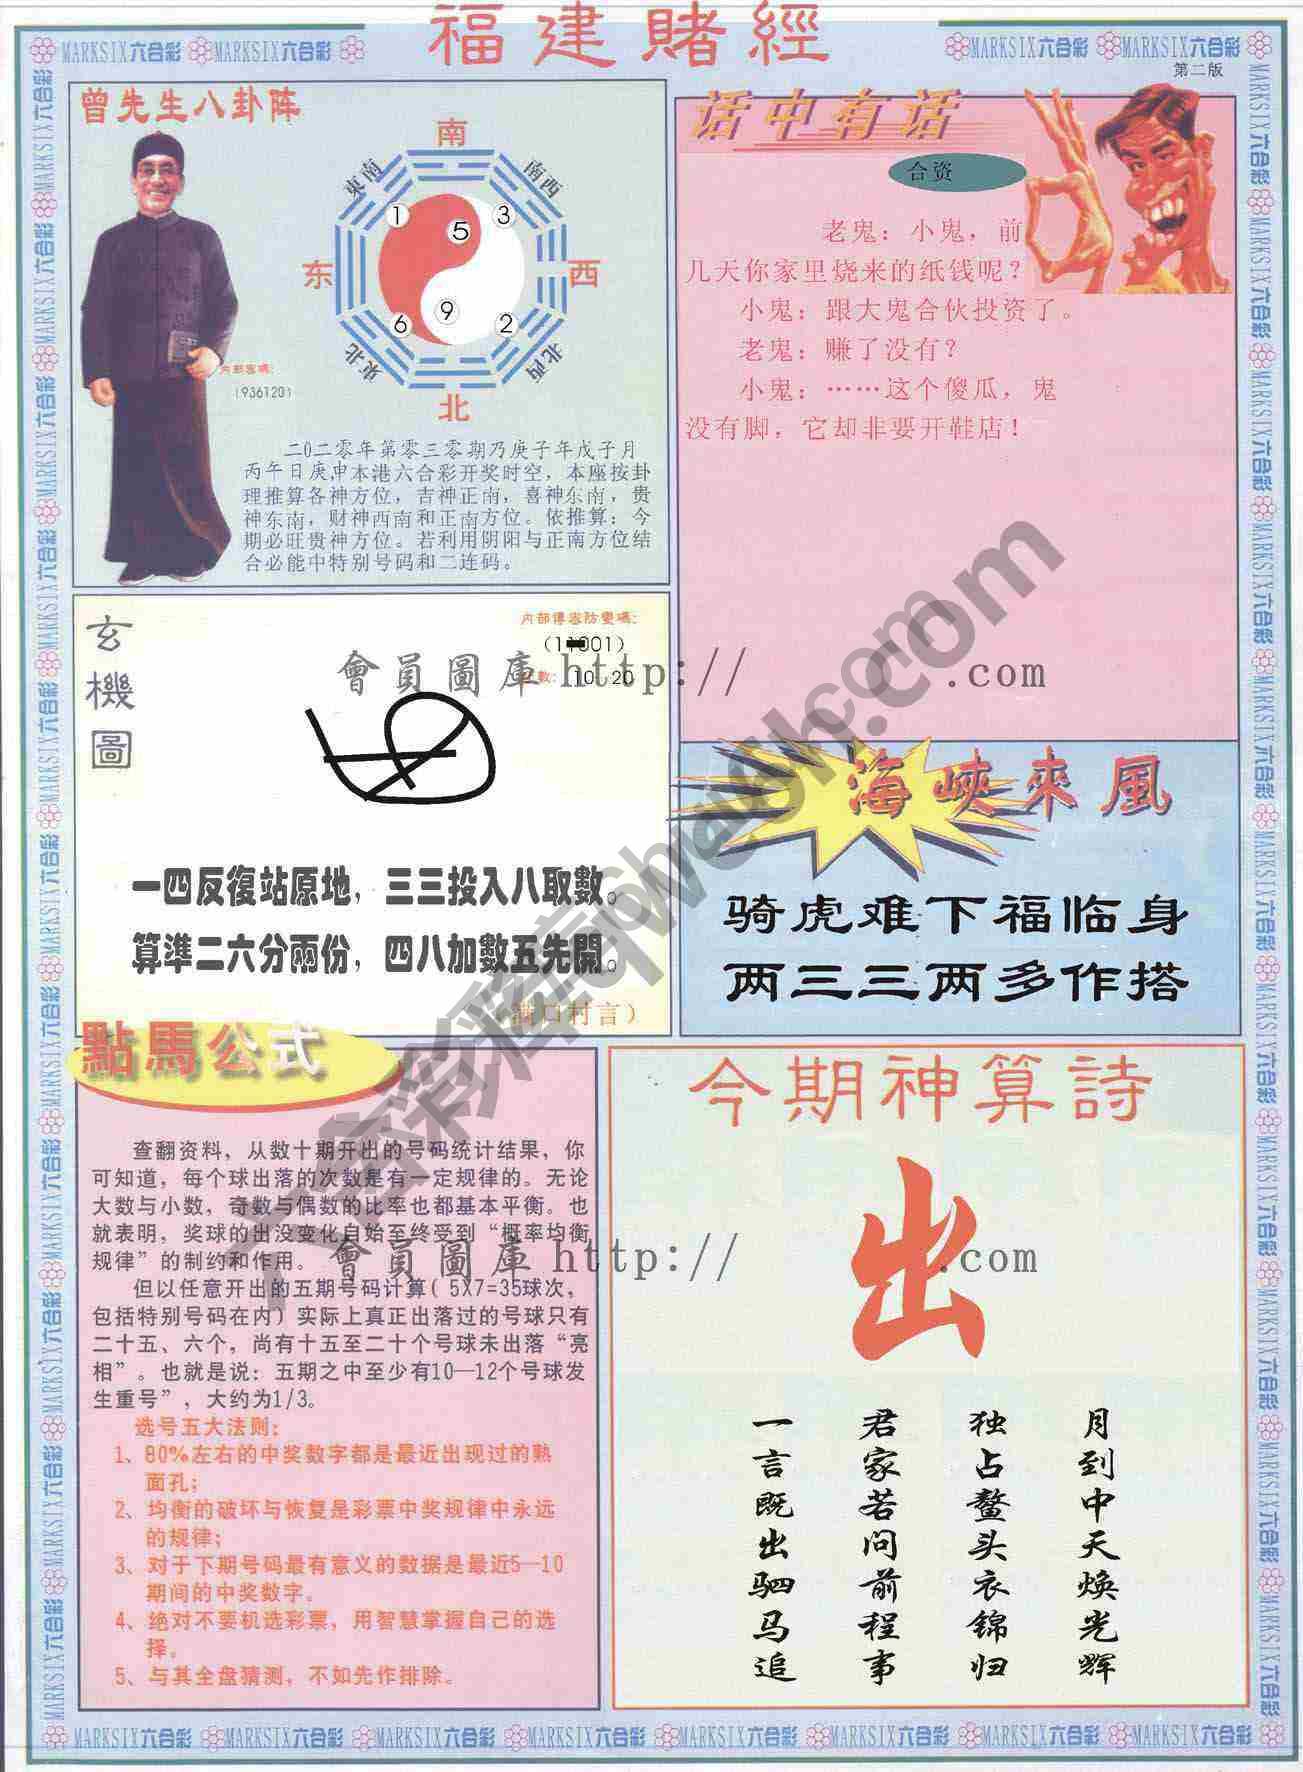 福建賭經
MARKSIX六合彩 MARKSIX六合彩
MARKSIX六合彩 MARKSIX六合彩
第二版
曾先生八卦阵
南
東南
南西
1
5
3
东
西
6
9
2
東北
北西
北
内部密碼：
(936120)
二0二零年第零三零期乃庚子年戊子月
丙午日庚申本港六合彩开奖时空，本座按卦
理推算各神方位，吉神正南，喜神东南，贵
神东南，财神西南和正南方位。依推算：今
期必旺贵神方位。若利用阴阳与正南方位结
合必能中特别号码和二连码。
话中有话
合资
老鬼：小鬼，前
几天你家里烧来的纸钱呢？
小鬼：跟大鬼合伙投资了。
老鬼：赚了没有？
小鬼：……这个傻瓜，鬼
没有脚，它却非要开鞋店！
玄機圖
内部傳密防變碼：
001)
數：10 20
會員圖庫 http:// .com
一四反復站原地，三三投入八取數。
算準二六分兩份，四八加數五先開。
满口村言）
海峽來風
骑虎难下福临身
两三三两多作搭
點馬公式
查翻资料，从数十期开出的号码统计结果，你
可知道，每个球出落的次数是有一定规律的。无论
大数与小数，奇数与偶数的比率也都基本平衡。也
就表明，奖球的出没变化自始至终受到“概率均衡
规律”的制约和作用。
但以任意开出的五期号码计算( 5X7=35球次，
包括特别号码在内) 实际上真正出落过的号球只有
二十五、六个，尚有十五至二十个号球未出落“亮
相”。也就是说：五期之中至少有10—12个号球发
生重号”，大约为1/3。
选号五大法则：
1、80%左右的中奖数字都是最近出现过的熟
面孔；
2、均衡的破坏与恢复是彩票中奖规律中永远
的规律；
3、对于下期号码最有意义的数据是最近5—10
期间的中奖数字。
4、绝对不要机选彩票，用智慧掌握自己的选
择。
5、与其全盘猜测，不如先作排除。
會員圖庫 http:// .com
今期神算詩
出
月到中天焕光辉
独占鳌头衣锦归
君家若问前程事
一言既出驷马追
MARKSIX六合彩 MARKSIX六合彩 MARKSIX六合彩 MARKSIX六合彩 MARKSIX六合彩 MARKSIX六合彩 MARKSIX六合彩 MARKSIX六合彩